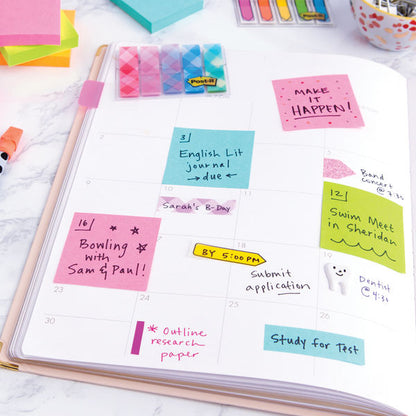 Post-it
MAKE
IT
HAPPEN!
2
3
English Lit
journal
→due←
5
Band
concert
@ 7:30
10
11
Sarah's B-Day
12
Swim Meet
in Sheridan
16
Bowling
with
Sam & Paul!
18
BY 5:00 PM
Submit
application
19
Dentist
@ 4:30
23
24
25
30
* Outline
research
paper
Study for Test